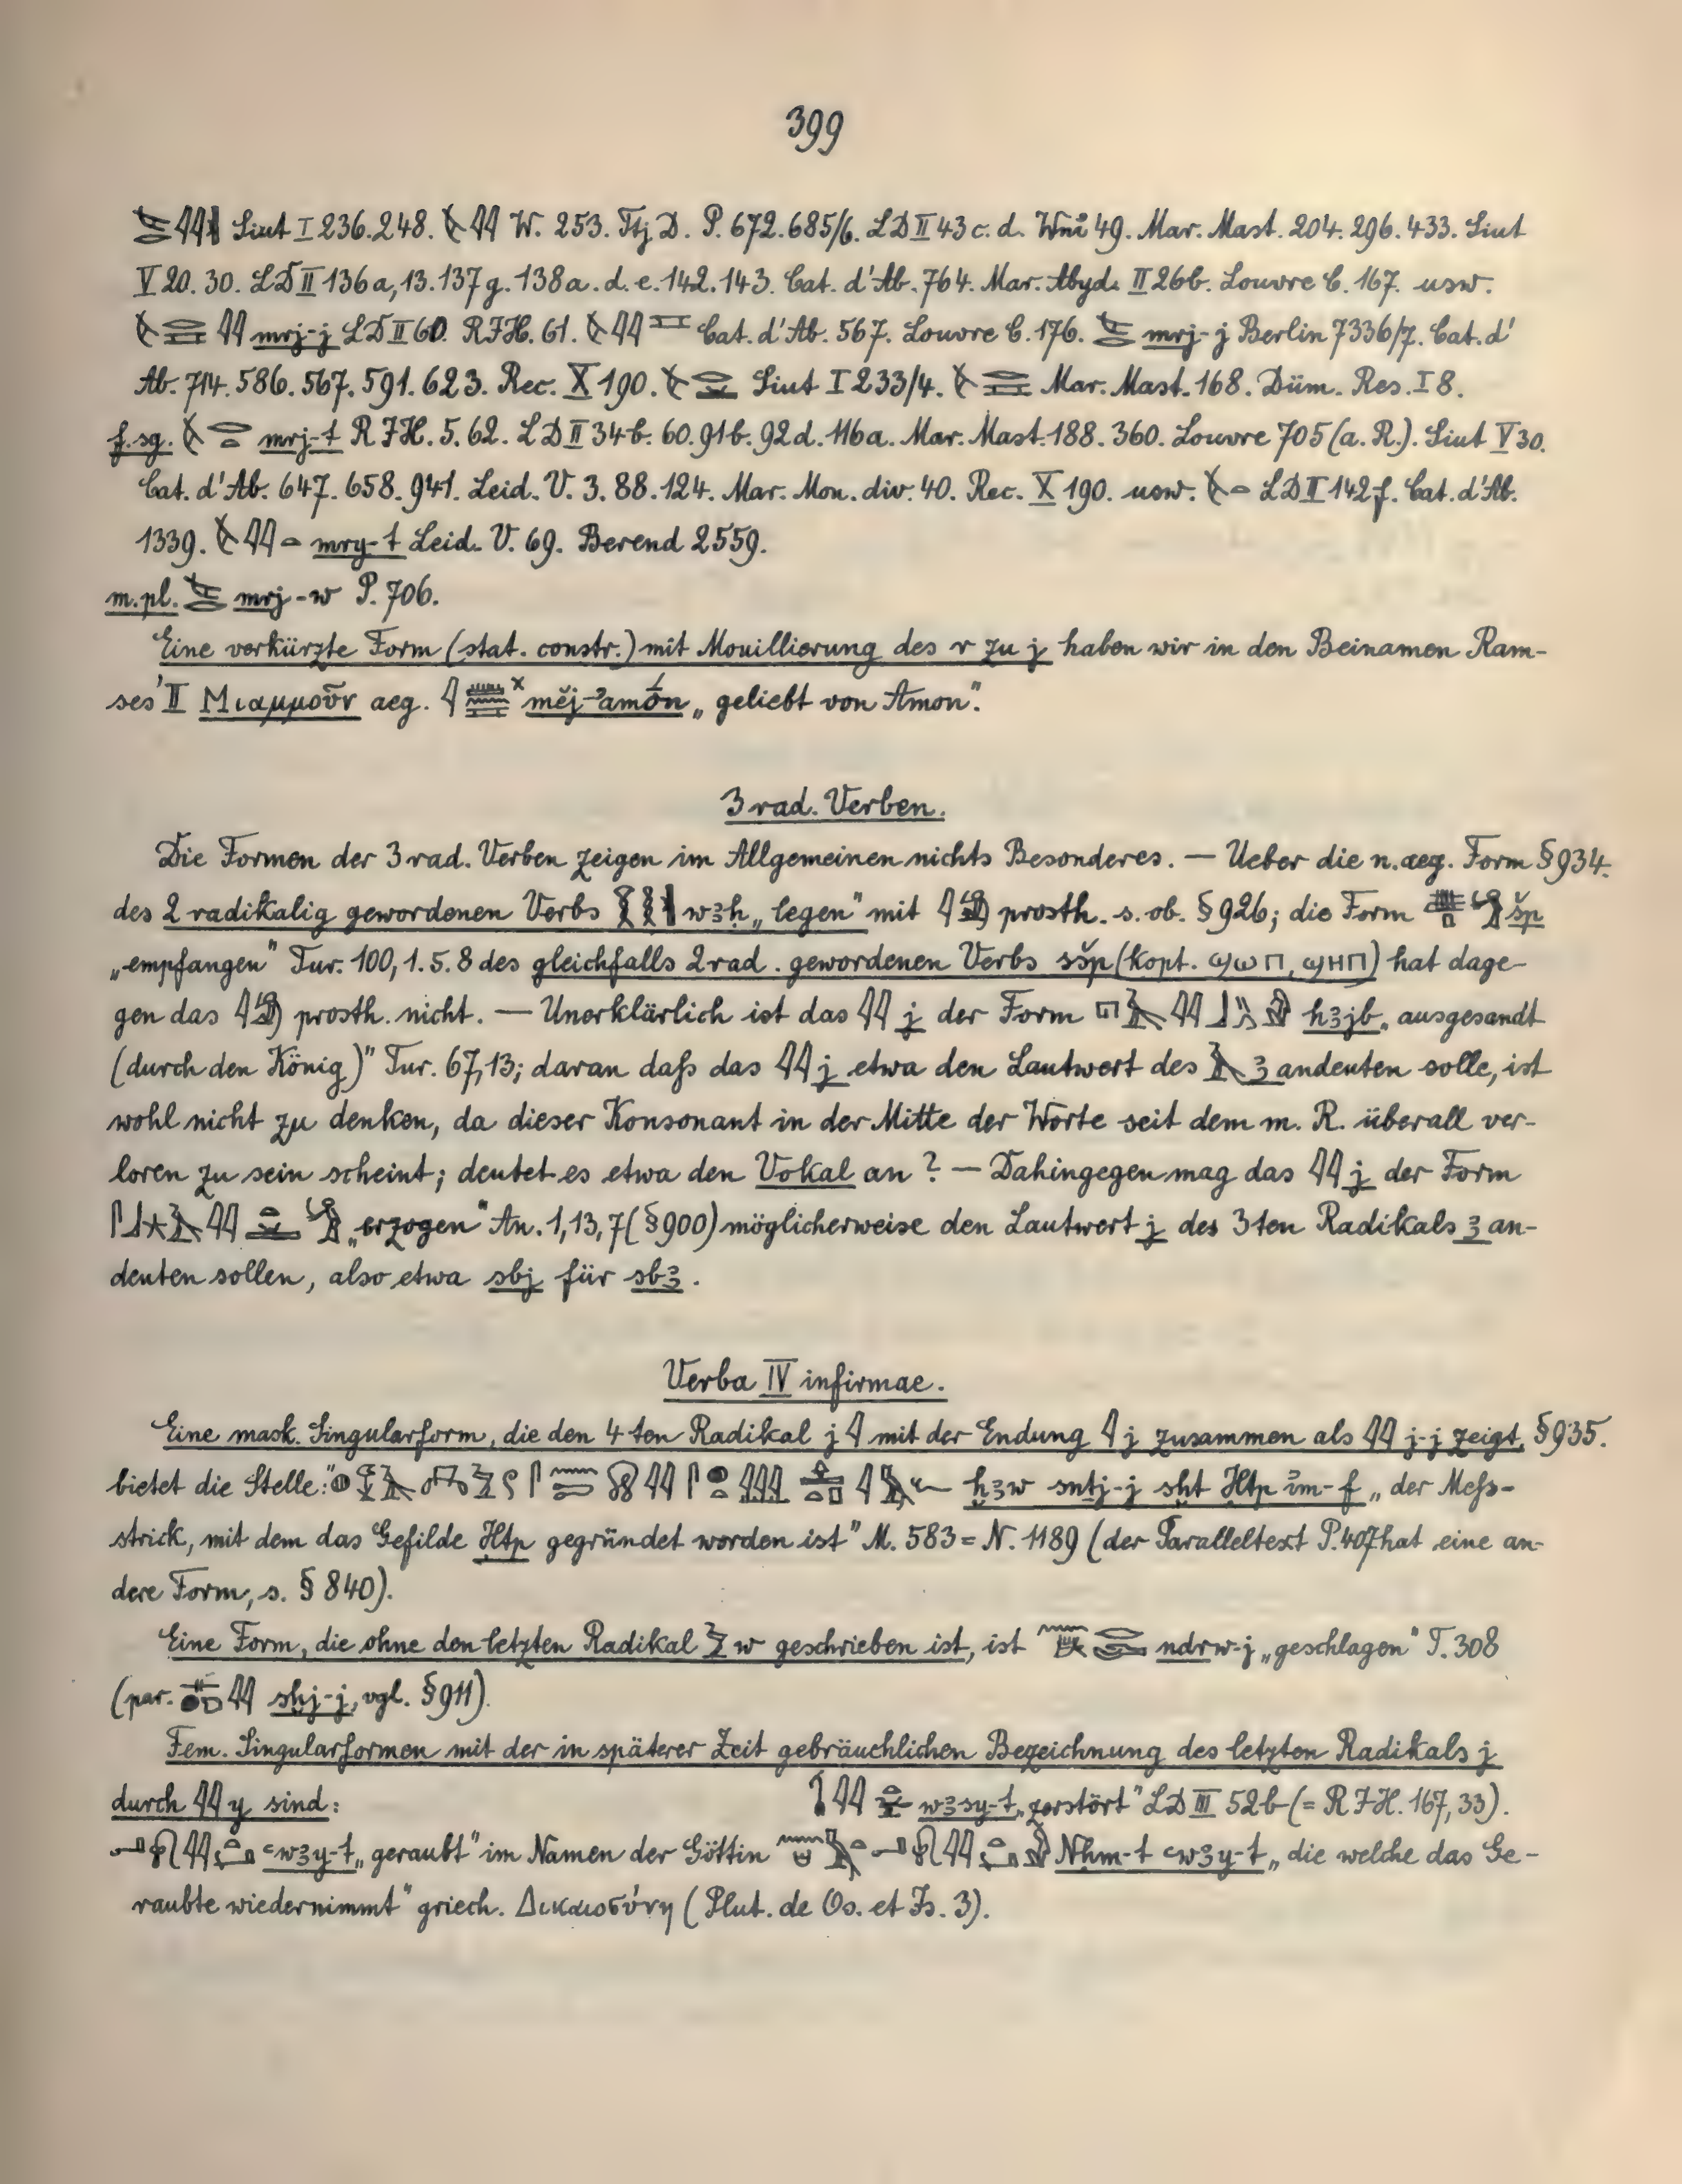 399
Siut I 236.248. W. 253. Ttj. D. P. 672.685/6. LD II 43 c. d. Wni 49. Mar. Mast. 204. 296. 433. Siut
V 20. 30. LD II 136a,13.137g. 138a. d. e. 142. 143. Cat. d'Ab. 764. Mar. Abyd. II 26b. Louvre C. 167. usw.
mrj-j LD II 60. RIH. 61. Cat. d'Ab. 567. Louvre C. 176. mrj-j Berlin 7336/7. Cat. d'
Ab. 714. 586. 567. 591. 623. Rec. X 190. Siut I 233/4. Mar. Mast. 168. Düm. Res. I 8.
f. sg. mrj-t RIH. 5. 62. LD II 34b. 60. 91b. 92d. 116a. Mar. Mast. 188. 360. Louvre 705 (a. R.). Siut V 30.
Cat. d'Ab. 647. 658. 941. Leid. V. 3. 88. 124. Mar. Mon. div. 40. Rec. X 190. usw. LD II 142f. Cat. d'Ab.
1339. mry-t Leid. V. 69. Berend 2559.
m. pl. mrj-w P. 706.
Eine verkürzte Form (stat. constr.) mit Mouillierung des r zu j haben wir in den Beinamen Ram-
ses' II Μιαμμοῦν aeg. 𓇋𓏠𓈖 ˣmĕj-ʾamṓn „geliebt von Amon".
3 rad. Verben.
Die Formen der 3 rad. Verben zeigen im Allgemeinen nichts Besonderes. — Ueber die n. aeg. Form § 934.
des 2 radikalig gewordenen Verbs wꜣḥ „legen" mit 𓇋𓀁 prosth. s. ob. § 926; die Form šp
„empfangen" Tur. 100, 1. 5. 8 des gleichfalls 2 rad. gewordenen Verbs sšp (kopt. ϣⲱⲡ, ϣⲏⲡ) hat dage-
gen das 𓇋𓀁 prosth. nicht. — Unerklärlich ist das 𓇋𓇋 j der Form hꜣjb „ausgesandt
(durch den König)" Tur. 67,13; daran daß das 𓇋𓇋 j etwa den Lautwert des 𓄿 ꜣ andeuten solle, ist
wohl nicht zu denken, da dieser Konsonant in der Mitte der Worte seit dem m. R. überall ver-
loren zu sein scheint; deutet es etwa den Vokal an? — Dahingegen mag das 𓇋𓇋 j der Form
„erzogen" An. 1, 13, 7 (§ 900) möglicherweise den Lautwert j des 3ten Radikals ꜣ an-
deuten sollen, also etwa sbj für sbꜣ.
Verba IV infirmae.
Eine mask. Singularform, die den 4ten Radikal j 𓇋 mit der Endung 𓇋 j zusammen als 𓇋𓇋 j-j zeigt, § 935.
bietet die Stelle: ḫꜣw sntj-j sḫt Ḥtp ỉm-f „der Meß-
strick, mit dem das Gefilde Ḥtp gegründet worden ist" M. 583 = N. 1189 (der Paralleltext P. 407 hat eine an-
dere Form, s. § 840).
Eine Form, die ohne den letzten Radikal 𓅱 w geschrieben ist, ist ndrw-j „geschlagen" T. 308
(par. 𓇋𓇋 sḫj-j, vgl. § 911).
Fem. Singularformen mit der in späterer Zeit gebräuchlichen Bezeichnung des letzten Radikals j
durch 𓇋𓇋 y sind: wꜣsy-t „zerstört" LD III 52b (= RIH. 167, 33).
ꜥwꜣy-t „geraubt" im Namen der Göttin Nḥm-t ꜥwꜣy-t „die welche das Ge-
raubte wiedernimmt" griech. Δικαιοσύνη (Plut. de Os. et Is. 3).